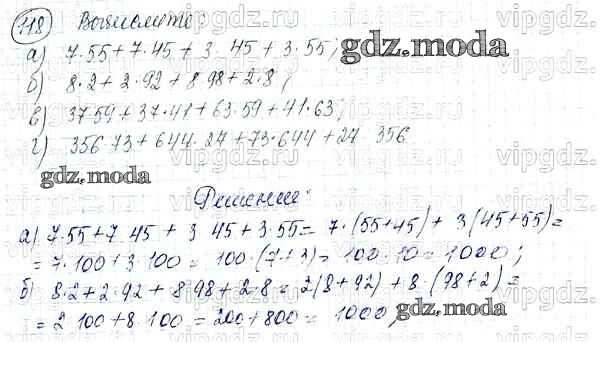 118 Вычислите:
а) 7·55+7·45+3·45+3·55;
gdz.moda
б) 8·2+2·92+8·98+2·8;
в) 37·59+37·41+63·59+41·63;
г) 356·73+644·27+73·644+27·356
gdz.moda
Решение:
а) 7·55+7·45+3·45+3·55=7·(55+45)+3(45+55)=
=7·100+3·100=100·(7+3)=100·10=1000;
б) 8·2+2·92+8·98+2·8=2(8+92)+8·(98+2)=
=2·100+8·100=200+800=1000;
gdz.moda